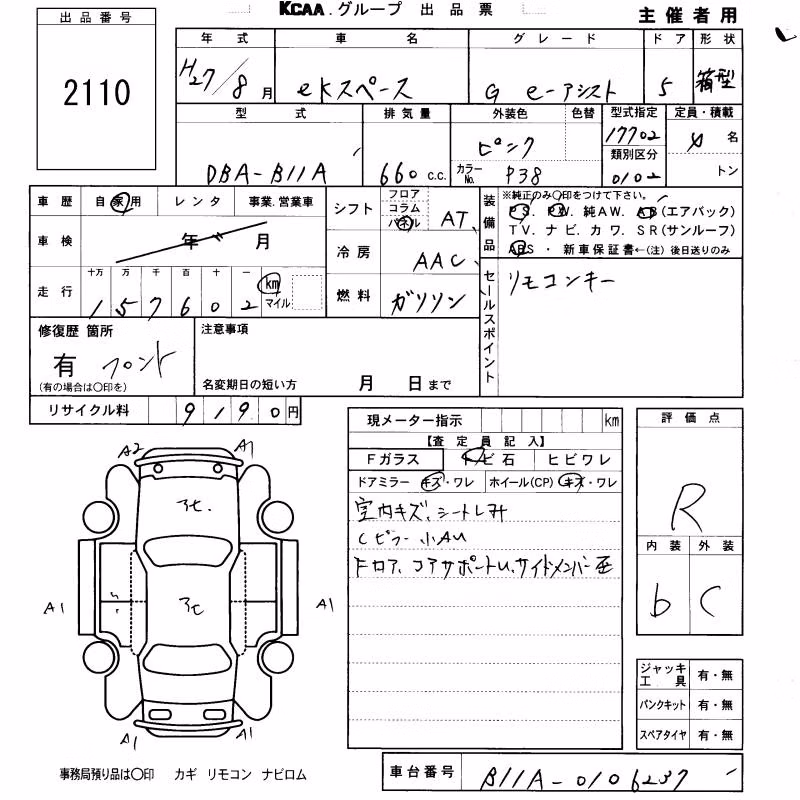 出品番号
2110
KCAA.グループ 出品票
主催者用
年式 車名 グレード ドア 形状
H27/8月 eKスペース G e-アシスト 5 箱型
型式 排気量 外装色 色替 型式指定 定員・積載
DBA-B11A 660 c.c. ピンク 17702 4名
カラーNo. P38 類別区分 0102 トン
車歴 自家用 レンタ 事業.営業車
車検 年 月
走行 十万 万 千 百 十 一
157602 km マイル
シフト フロア コラム パネル AT
冷房 AAC
燃料 ガソリン
装備品 ※純正のみ○印をつけて下さい。
PS. PW. 純AW. AB(エアバック)
TV. ナビ. カワ. SR(サンルーフ)
ABS・新車保証書←(注)後日送りのみ
セールスポイント リモコンキー
修復歴 箇所
有 フロント
(有の場合は○印を)
注意事項
名変期日の短い方 月 日まで
リサイクル料 9190円
現メーター指示 km
【査定員記入】
Fガラス トビ石 ヒビワレ
ドアミラー キズ・ワレ ホイール(CP) キズ・ワレ
室内キズ、シートしみ
Cピラー小AU
Fロア、コアサポートU、サイドメンバー歪
評価点
R
内装 外装
b C
ジャッキ工具 有・無
パンクキット 有・無
スペアタイヤ 有・無
A2 A1
アセ.
アセ
A1 A1
A1 A1
事務局預り品は○印 カギ リモコン ナビロム
車台番号 B11A-0106237